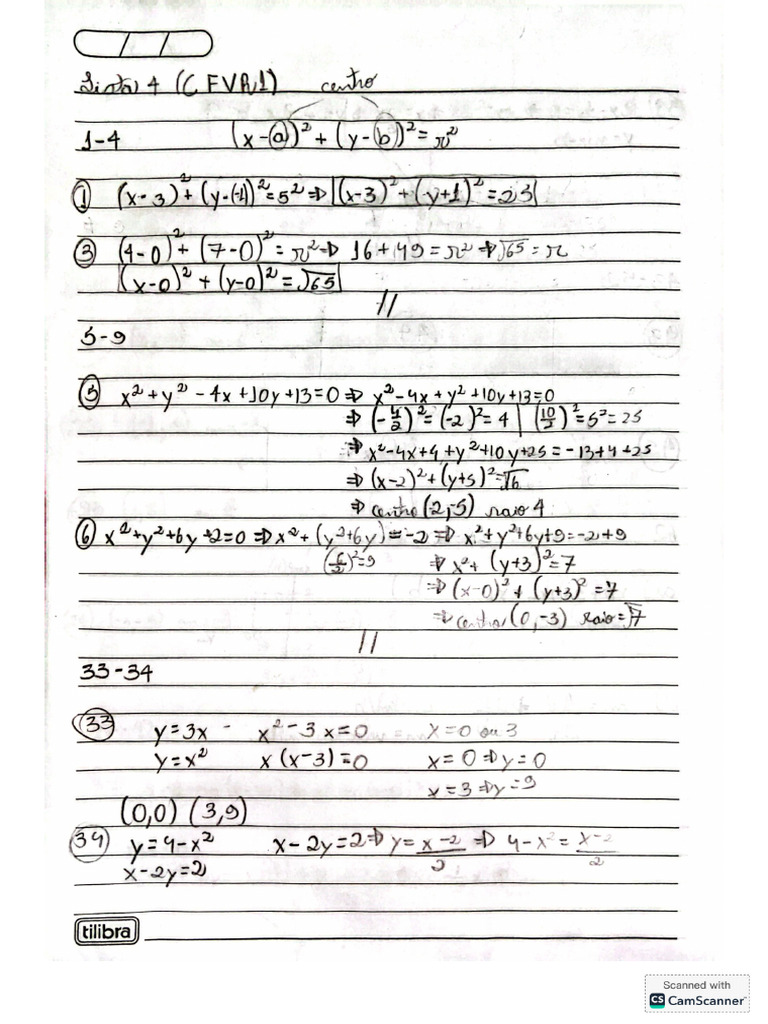 Lista 4 (CFVR1) centro
1-4 (x-a)² + (y-b)² = r²
① (x-3)² + (y-(-1))² = 5² ⇒ (x-3)² + (y+1)² = 25
③ (4-0)² + (7-0)² = r² ⇒ 16 + 49 = r² ⇒ √65 = r
(x-0)² + (y-0)² = √65
//
5-9
⑤ x² + y² - 4x + 10y + 13 = 0 ⇒ x² - 4x + y² + 10y + 13 = 0
⇒ (-4/2)² = (-2)² = 4 | (10/2)² = 5² = 25
⇒ x² - 4x + 4 + y² + 10y + 25 = -13 + 4 + 25
⇒ (x-2)² + (y+5)² = √16
⇒ centro (2,-5) raio 4
⑥ x² + y² + 6y + 2 = 0 ⇒ x² + (y² + 6y) = -2 ⇒ x² + y² + 6y + 9 = -2 + 9
(6/2)² = 9 ⇒ x² + (y+3)² = 7
⇒ (x-0)² + (y+3)² = 7
⇒ centro (0,-3) raio = √7
//
33-34
㉝ y = 3x x² - 3x = 0 x = 0 ou 3
y = x² x(x-3) = 0 x = 0 ⇒ y = 0
x = 3 ⇒ y = 9
(0,0) (3,9)
㉞ y = 4 - x² x - 2y = 2 ⇒ y = x-2/2 ⇒ 4 - x² = x-2/2
x - 2y = 2
tilibra
Scanned with
CS CamScanner